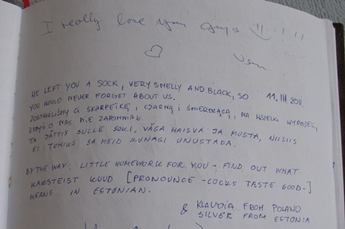 I really love you guys !!!!
WE LEFT YOU A SOCK, VERY SMELLY AND BLACK, SO
YOU WOULD NEVER FORGET ABOUT US.
11.III 2011
ZOSTAWILIŚMY CI SKARPETKĘ, CZARNĄ I ŚMIERDZĄCĄ, NA WSZELKI WYPADEK,
O NAS NIE
SULLE SOKI, VÄGA HAISVA JA MUSTA, NIISIIS
EI MEID KUNAGI UNUSTADA.
BY THE WAY. LITTLE HOMEWORK FOR YOU - FIND OUT WHAT
KUUD [PRONOUNCE -COCKS TASTE GOOD-]
MEANS IN ESTONIAN.
& KLAUDIA FROM POLAND
SILVER FROM ESTONIA